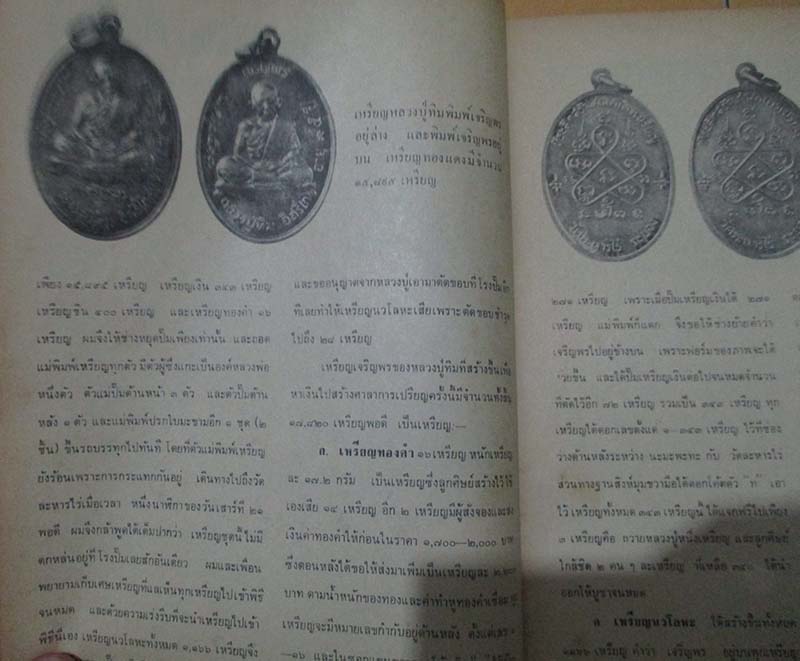 เหรียญหลวงปู่ทิมพิมพ์เจริญพร
อยู่ล่าง และพิมพ์เจริญพรอยู่
บน เหรียญทองแดงมีจำนวน
๑๕,๘๙๕ เหรียญ
เพียง ๑๕,๘๙๕ เหรียญ เหรียญเงิน ๓๔๓ เหรียญ
เหรียญชิน ๔๐๐ เหรียญ และเหรียญทองคำ ๑๖
เหรียญ ผมจึงให้ช่างหยุดปั๊มเพียงเท่านั้น และถอด
แม่พิมพ์เหรียญทุกตัว มีตัวผู้ซึ่งแกะเป็นองค์หลวงพ่อ
หนึ่งตัว ตัวแม่ปั๊มด้านหน้า ๓ ตัว และตัวปั๊มด้าน
หลัง ๑ ตัว และแม่พิมพ์ปรกใบมะขามอีก ๑ ชุด (๒
ชิ้น) ขึ้นรถบรรทุกไปทันที โดยที่ตัวแม่พิมพ์เหรียญ
ยังร้อนเพราะการกระแทกกันอยู่ เดินทางไปถึงวัด
ละหารไร่เมื่อเวลา หนึ่งนาฬิกาของวันเสาร์ที่ ๒๑
พอดี ผมจึงกล้าพูดได้เต็มปากว่า เหรียญชุดนี้ไม่มี
ตกหล่นอยู่ที่โรงปั๊มเลยสักอันเดียว ผมและเพื่อน
พยายามเก็บเศษเหรียญที่แลเห็นทุกเหรียญไปเข้าพิธี
จนหมด และด้วยความเร่งรีบที่จะนำเหรียญไปเข้า
พิธีนี้เอง เหรียญนวโลหะทั้งหมด ๑,๑๖๖ เหรียญจึง
และขออนุญาตจากหลวงปู่เอามาตัดขอบที่โรงปั๊มอีก
ทีเลยทำให้เหรียญนวโลหะเสียเพราะตัดขอบชำรุด
ไปถึง ๒๘ เหรียญ
เหรียญเจริญพรของหลวงปู่ทิมที่สร้างขึ้นเพื่อ
หาเงินไปสร้างศาลาการเปรียญครั้งนี้มีจำนวนทั้งสิ้น
๑๘,๘๒๐ เหรียญพอดี เป็นเหรียญ:—
ก. เหรียญทองคำ ๑๖ เหรียญ หนักเหรียญ
ละ ๑๗.๒ กรัม เป็นเหรียญซึ่งลูกศิษย์สร้างไว้ใช้
เองเสีย ๑๔ เหรียญ อีก ๒ เหรียญมีผู้สั่งจองและส่ง
เงินค่าทองคำให้ก่อนในราคา ๑,๗๐๐—๒,๐๐๐ บาท
ซึ่งตอนหลังได้ขอให้ส่งมาเพิ่มเป็นเหรียญละ
บาท ตามน้ำหนักของทองและค่าทำหูทองคำเชื่อม
เหรียญจะมีหมายเลขกำกับอยู่ด้านหลัง ตั้งแต่เลข ๑
—๑๖
๒๗๑ เหรียญ เพราะเมื่อปั๊มเหรียญเงินได้ ๒๗๑
เหรียญ แม่พิมพ์ก็แตก จึงขอให้ช่างย้ายคำว่า
เจริญพรไปอยู่ข้างบน เพราะฟอร์มของภาพจะได้
ขึ้น และได้ปั๊มเหรียญเงินต่อไปจนหมดจำนวน
ที่ตัดไว้อีก ๗๒ เหรียญ รวมเป็น ๓๔๓ เหรียญ ทุก
เหรียญได้ตอกเลขตั้งแต่ ๑—๓๔๓ เหรียญ ไว้ที่ช่อง
ว่างด้านหลังระหว่าง นะมะพะทะ กับ วัดละหารไร่
ส่วนทางฐานสิงห์มุมขวามือได้ตอกโค้ดตัว "ท" เอา
ไว้ เหรียญทั้งหมด ๓๔๓ เหรียญนี้ ได้แจกฟรีไปเพียง
๓ เหรียญคือ ถวายหลวงปู่หนึ่งเหรียญ และลูกศิษย์
ใกล้ชิด ๒ คน ๆ ละเหรียญ ที่เหลือ ๓๔๐ ได้นำ
ออกให้บูชาจนหมด
ค เหรียญนวโลหะ ได้สร้างขึ้นทั้งหมด
๑๑๖๖ เหรียญ คำว่า เจริญพร อยู่บนทุกเหรียญ